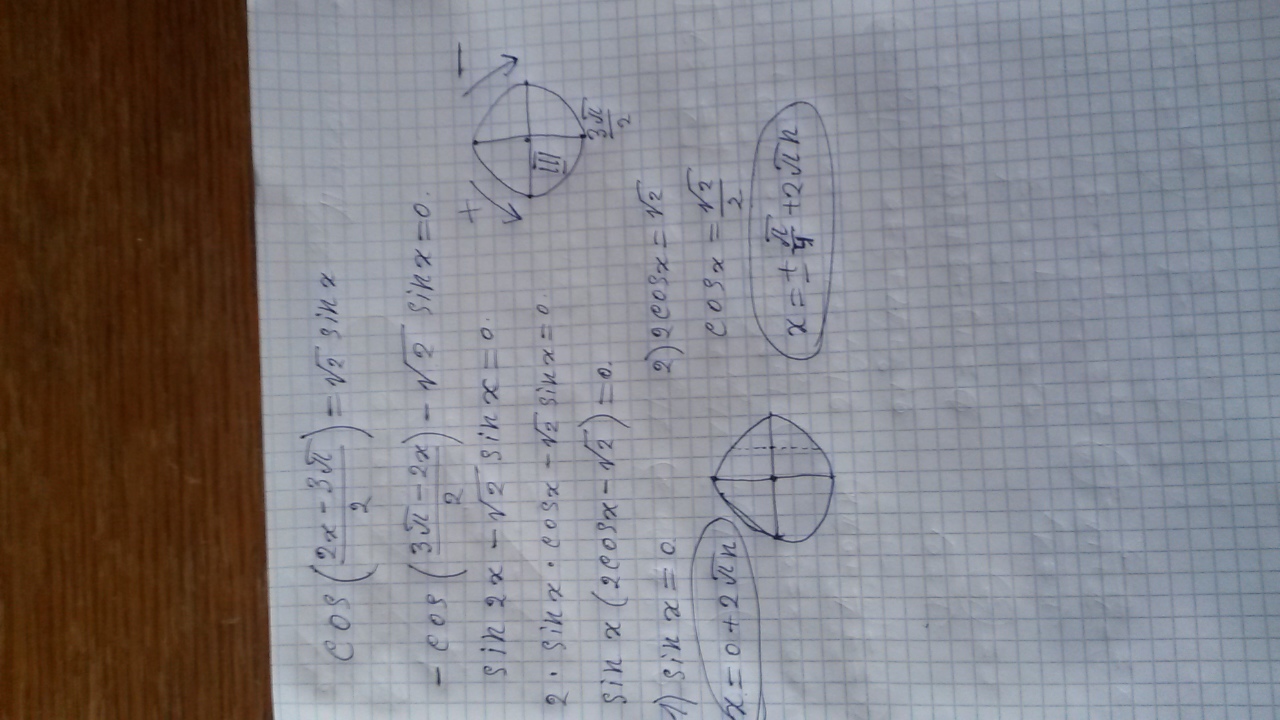 cos (2x - 3π / 2) = √2 sin x
- cos (3π - 2x / 2) - √2 sin x = 0.
sin 2x - √2 sin x = 0.
2 · sin x · cos x - √2 sin x = 0.
sin x (2cos x - √2) = 0.
1) sin x = 0.
x = 0 + 2πn
2) 2cos x = √2
cos x = √2 / 2
x = ± π/4 + 2πn
+
-
III
3π / 2